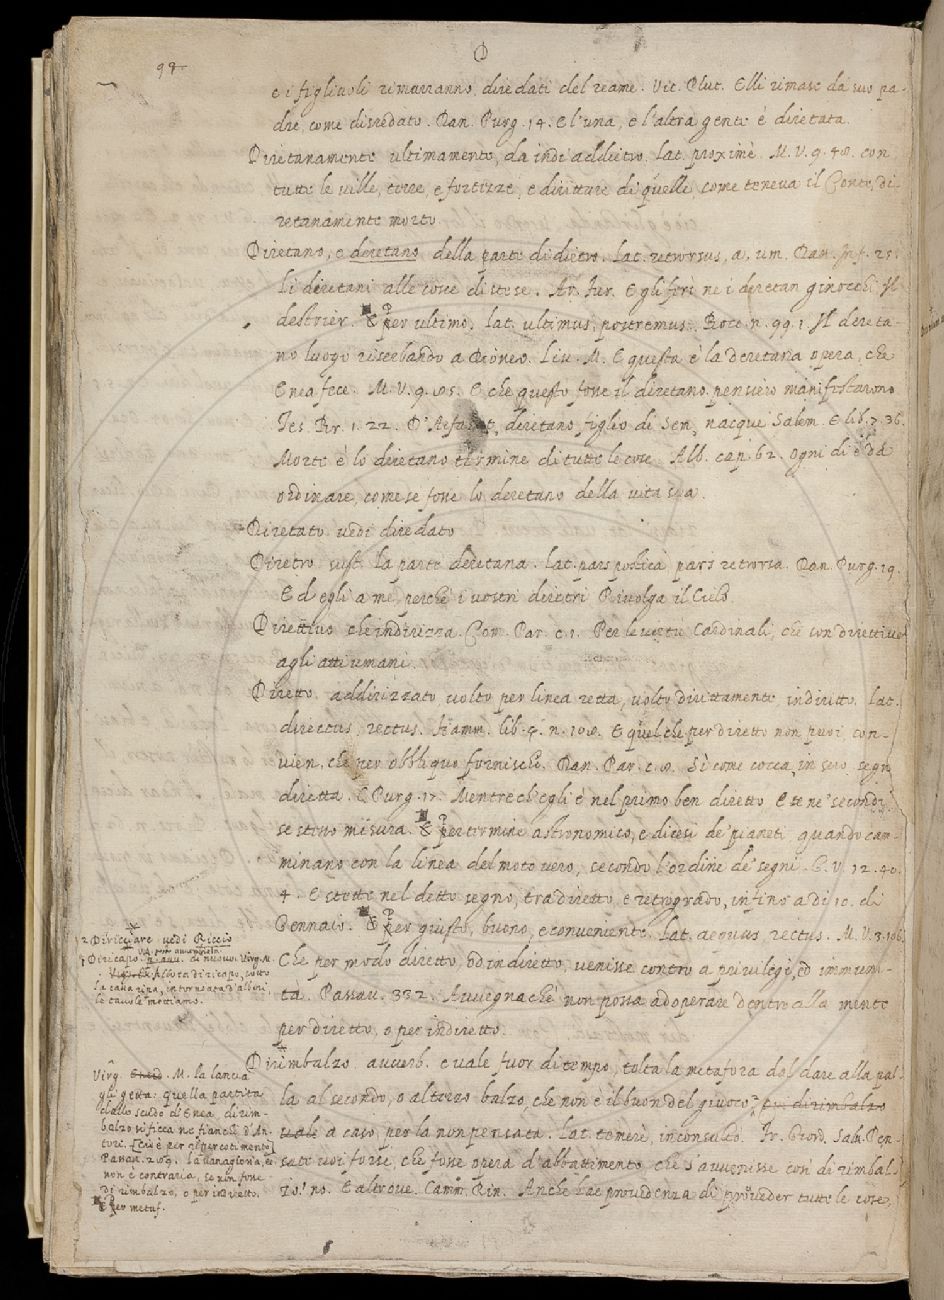 98
D
e i figliuoli rimarranno diredati del reame. Vit. Plut. Elli rimase da suo pa-
dre, come disredato. Dan. Purg. 14. E l'una, e l'altra gente è diretata.
Diretanamente ultimamente, da indi addietro. Lat. proximè. M. V. 9. 48. con
tutte le ville, terre, e fortezze, e diritture di quelle, come teneva il Conte, di-
retanamente morto
Diretano, e deretano della parte di dietro. Lat. retrorsus, a, um. Dan. Inf. 25.
Li diretani alle cosce distese. Ar. Fur. E gli ferì ne i deretan ginocchi Il
destrier. E per ultimo. Lat. ultimus, postremus. Bocc. n. 99. 1. Il dereta-
no luogo riserbando a Dioneo. Liv. M. E questa è la deretana opera, che
Enea fece. M. V. 9. 85. E che questo fosse il diretano pensiero manifestarono
Tes. Br. 1. 22. D' diretano figlio di Sem, nacque Salem. E lib. 7. 36.
Morte è lo diretano termine di tutte le cose. Alb. cap. 62. Ogni dì è da
ordinare, come se fosse lo deretano della vita sua.
Diretato vedi diredato
Diretro sust. la parte deretana. Lat. pars postica pars retrorsa. Dan. Purg. 19.
Ed egli a me, perchè i vostri diretri Rivolga il Cielo
Direttivo che indirizza. Com. Par. c. 1. Per le vertù Cardinali, che son direttive
agli atti umani.
Diretto addirizzato, volto per linea retta, volto dirittamente, indiritto. Lat.
directus, rectus. Fiamm. lib. 4. n. 108. E quel che per diretto non puoi, con-
vien, che per obbliquo fornischi. Dan. Par. c. 8. Sì come cocca, in suo segn
diretta. E Purg. 17. Mentre ch'egli è nel primo ben diretto, E ne' secondi
se stesso misura. E per termine astronomico, e dicesi de' pianeti quando cam-
minano con la linea del moto vero, secondo l'ordine de' segni. G. V. 12. 40.
4. E stette nel detto segno, tra diretto, e retrogrado, infino a dì 10. di
Gennaio. E per giusto, buono, e conveniente. Lat. aequus, rectus. M. V. 3. 106.
Che per modo diretto, od indiretto, venisse contro a privilegi, ed immuni-
tà. Passav. 332. Avvegnachè non possa adoperare dentro alla mente
per diretto, o per indiretto.
Dirimbalzo avverb. e vale fuor di tempo, tolta la metafora dal dare alla pal-
la al secondo, o al terzo balzo, che non è il buon del giuoco, qui dirimbalzo
vale a caso, per la non pensata. Lat. temerè, inconsultò. Fr. Giord. Salv. Pen-
sate voi forse, che fosse opera d'abbattimento, che s'avvenisse così di rimbal-
zo? no. E altrove. Comm. Rin. Anche l'ae providenza di proveder tutte le cose,
12 Diricciare vedi Riccio
1 Diricapo. avv. di nuovo. Virg. M.
Allora di ricapo, sotto
la cava ripa, intorneata d'albori,
le tavole mettiamo.
Virg. M. la lancia
gli getta: quella partita
dallo scudo di Enea, di rim-
balzo si ficca ne' fianchi d'An-
tore. [cioè è per ripercotimento]
Passav. 209. La vanagloria, ci
non è contraria, se non fosse
di rimbalzo, o per indiretto.
E per metaf.